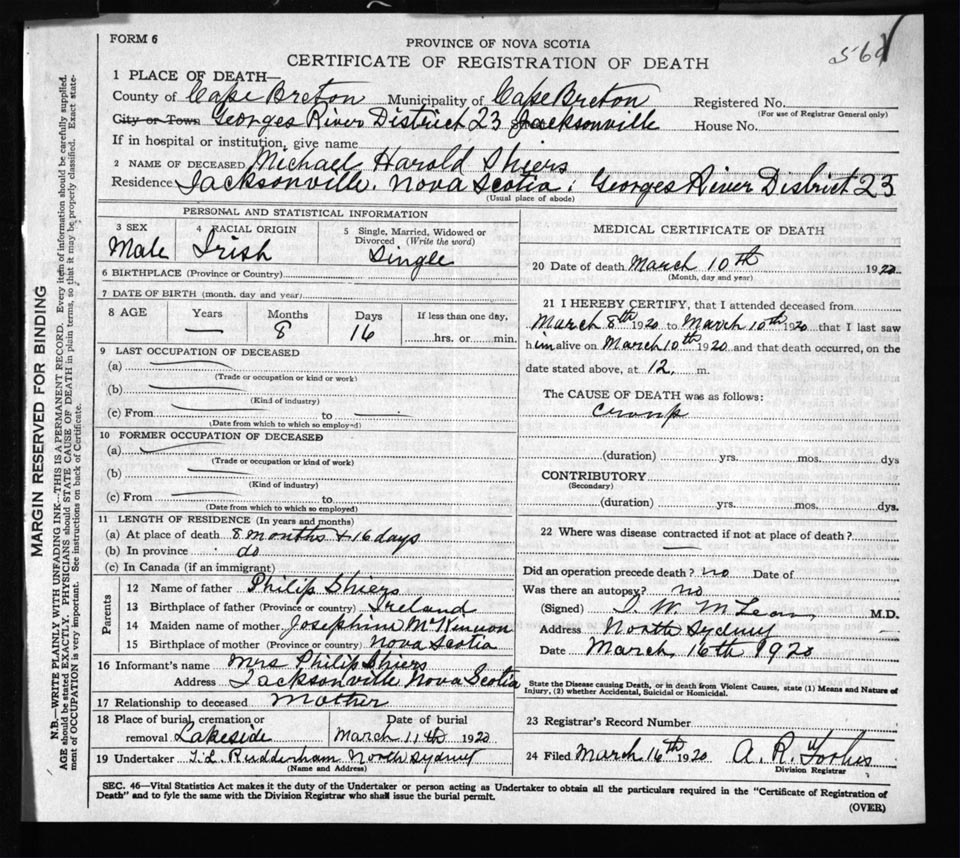 FORM 6
PROVINCE OF NOVA SCOTIA
CERTIFICATE OF REGISTRATION OF DEATH
1 PLACE OF DEATH—
County of Cape Breton Municipality of Cape Breton Registered No.
(For use of Registrar General only)
City or Town Georges River District 23 Jacksonville House No.
If in hospital or institution, give name
2 NAME OF DECEASED Michael Harold Shiers
Residence Jacksonville, Nova Scotia: Georges River District 23
(Usual place of abode)
PERSONAL AND STATISTICAL INFORMATION
3 SEX 4 RACIAL ORIGIN 5 Single, Married, Widowed or Divorced (Write the word)
Male Irish Single
6 BIRTHPLACE (Province or Country)
7 DATE OF BIRTH (month, day and year)
8 AGE Years Months Days If less than one day,
— 8 16 hrs. or min.
9 LAST OCCUPATION OF DECEASED
(a)
(Trade or occupation or kind or work)
(b)
(Kind of industry)
(c) From to
(Date from which to which so employed)
10 FORMER OCCUPATION OF DECEASED
(a)
(Trade or occupation or kind of work)
(b)
(Kind of industry)
(c) From to
(Date from which to which so employed)
11 LENGTH OF RESIDENCE (In years and months)
(a) At place of death 8 months + 16 days
(b) In province do
(c) In Canada (if an immigrant)
Parents
12 Name of father Philip Shiers
13 Birthplace of father (Province or country) Ireland
14 Maiden name of mother Josephine McKinnon
15 Birthplace of mother (Province or country) Nova Scotia
16 Informant's name Mrs Philip Shiers
Address Jacksonville Nova Scotia
17 Relationship to deceased Mother
18 Place of burial, cremation or removal Lakeside
Date of burial March 11th 1920
19 Undertaker T. L. Rudderham North Sydney
(Name and Address)
MEDICAL CERTIFICATE OF DEATH
20 Date of death March 10th 1920
(Month, day and year)
21 I HEREBY CERTIFY, that I attended deceased from
March 8th 1920 to March 10th 1920 that I last saw
him alive on March 10th 1920 and that death occurred, on the
date stated above, at 12 m.
The CAUSE OF DEATH was as follows:
croup
(duration) yrs. mos. dys
CONTRIBUTORY
(Secondary)
(duration) yrs. mos. dys.
22 Where was disease contracted if not at place of death?
—
Did an operation precede death? no Date of
Was there an autopsy? no
(Signed) McLean M.D.
Address North Sydney
Date March 16th 1920
State the Disease causing Death, or in death from Violent Causes, state (1) Means and Nature of
Injury, (2) whether Accidental, Suicidal or Homicidal.
23 Registrar's Record Number
24 Filed March 16th 1920 A. R. Forbes
Division Registrar
SEC. 46—Vital Statistics Act makes it the duty of the Undertaker or person acting as Undertaker to obtain all the particulars required in the "Certificate of Registration of
Death" and to fyle the same with the Division Registrar who shall issue the burial permit.
(OVER)
MARGIN RESERVED FOR BINDING
N.B.—WRITE PLAINLY WITH UNFADING INK—THIS IS A PERMANENT RECORD. Every item of information should be carefully supplied.
AGE should be stated EXACTLY. PHYSICIANS should STATE CAUSE OF DEATH in plain terms, so that it may be properly classified. Exact statement
of OCCUPATION is very important. See instructions on back of Certificate.